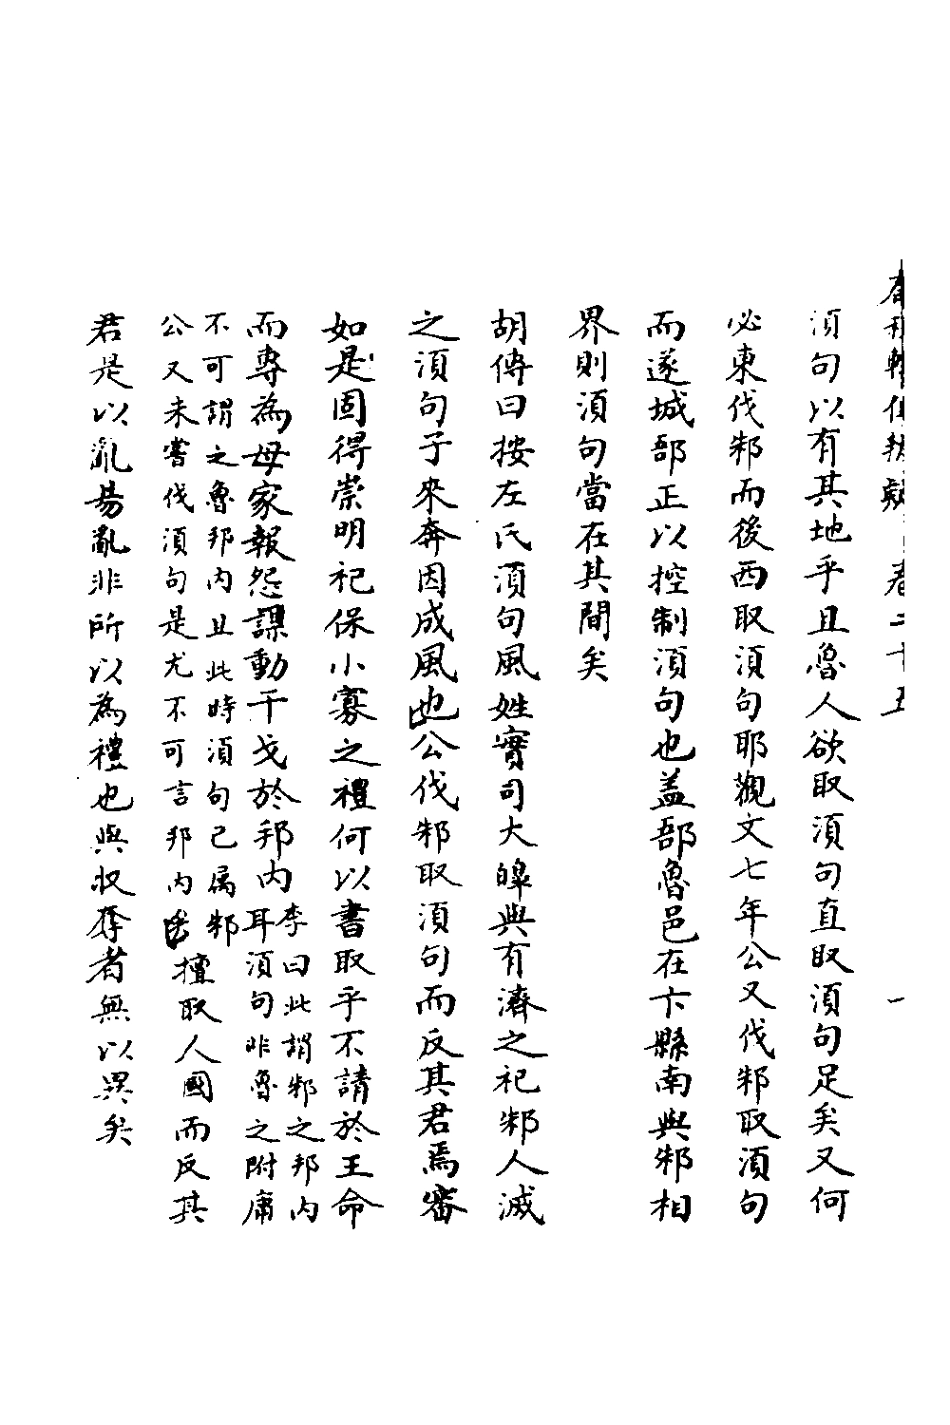 春秋輯傳辨疑 卷二十五 一
須句以有其地乎且魯人欲取須句直取須句足矣又何
必東伐邾而後西取須句耶觀文七年公又伐邾取須句
而遂城郚正以控制須句也盖郚魯邑在卞縣南與邾相
界則須句當在其間矣
胡傳曰按左氏須句風姓實司大皥與有濟之祀邾人滅
之須句子來奔因成風也公伐邾取須句而反其君焉審
如是固得崇明祀保小寡之禮何以書取乎不請於王命
而專為母家報怨謀動干戈於邦内李曰此謂邾之邦内
耳須句非魯之附庸
不可謂之魯邦内且此時須句已屬邾
公又未嘗伐須句是尤不可言邦内也擅取人國而反其
君是以亂易亂非所以為禮也與收奪者無以異矣